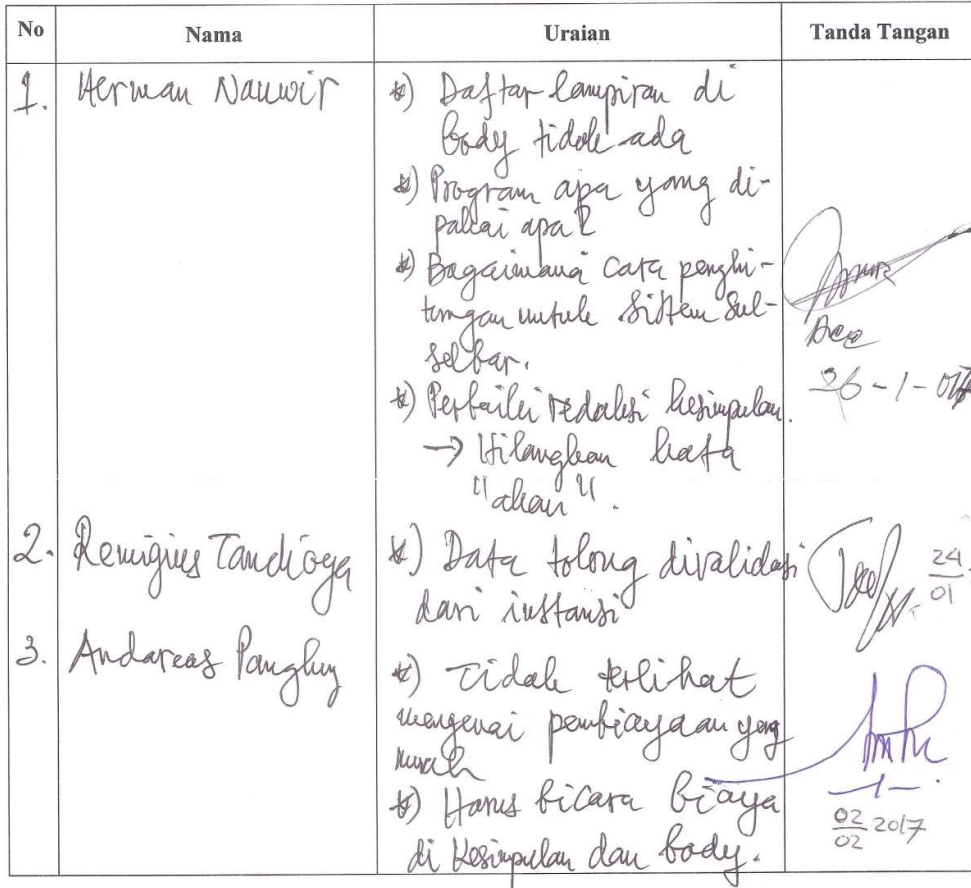 No Nama Uraian Tanda Tangan
1. Herman Nauwir *) Daftar lampiran di
body tidak ada
*) Program apa yang di-
pakai apa?
*) Bagaimana cara penghi-
tungan untuk Sistem Sul-
selbar.
Acc
26-1-017
*) Perbaiki redaksi kesimpulan.
→ Hilangkan kata
"akan".
2. Remigius Tandioga *) Data tolong divalidasi
dari instansi
24
01
3. Andareas Pangkung *) Tidak terlihat
mengenai pembiayaan yang
murah
*) Harus bicara biaya
di Kesimpulan dan body.
02 2017
02